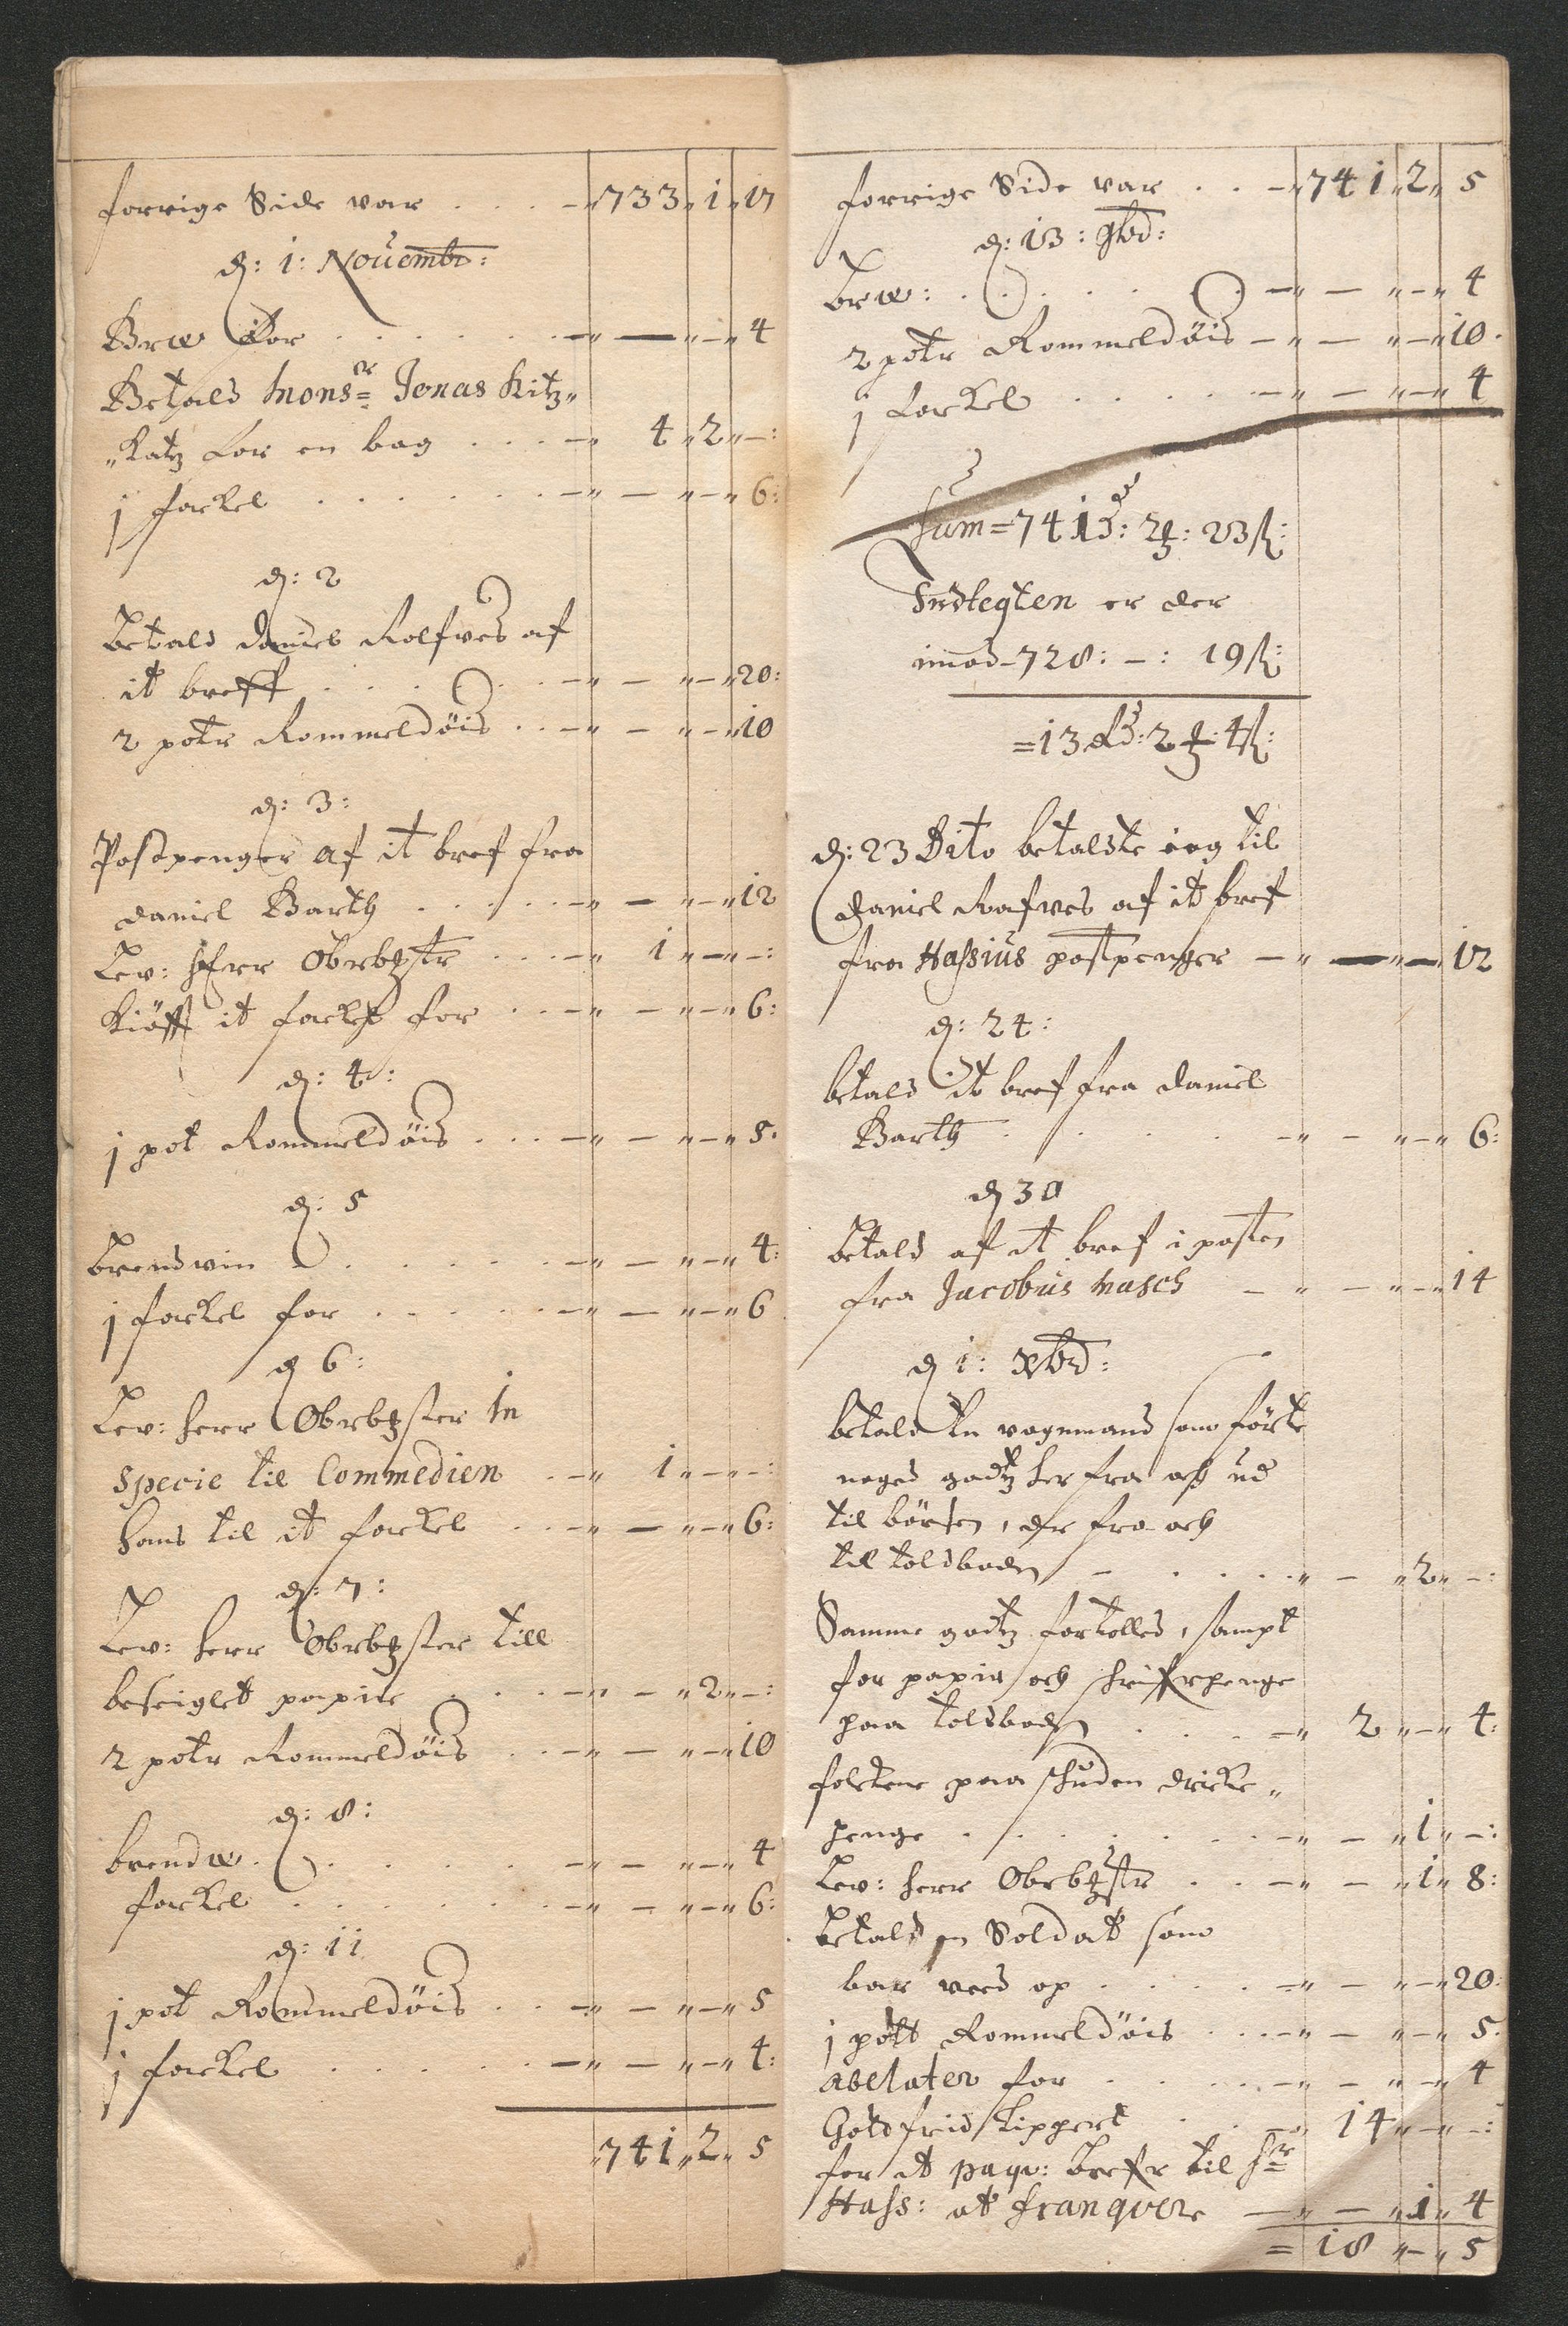 forrige Side var . . . —„733„1„17
d: 1: Novembr:
Brw for . . . . . . —„—„—„4
Betald Mons:r Jonas Kitz„
„katz for en bog . . . —„ 4„2„—:
j fackel . . . . . . —„—„—„6:
d: 2
Betald Daniel Rolfves af
it breff . . . . . . —„—„—„20:
2 potr Rommeldöis . . —„—„—„10
d: 3:
Postpenger af it bref fra
Daniel Barth . . . . . —„—„—„12
Lev: Herr Obrbtzstr . . . —„ 1„—„—:
Kiöfft it fackel for . . —„—„—„6:
d: 4:
j pot Rommeldöis . . . —„—„—„5.
d: 5
Brendwin . . . . . . —„—„—„4:
j fackel for . . . . . —„—„—„6
d 6:
Lev: Herr Obrbtzster in
Specie til Commedien . —„ 1„—„—:
Hans til it fackel . . —„—„—„6:
d: 7:
Lev: Herr Obrbtzster till
beseiglet papire . . . —„—„2„—:
2 potr Rommeldöis . . —„—„—„10
d: 8:
brendw. . . . . . . —„—„—„4
fackel . . . . . . —„—„—„6:
d: 11
j pot Rommeldöis . . —„—„—„5
j fackel . . . . . —„—„—„4:
„741„2„5
forrige Side var . . —„741„2„5
d: 13: 9br:
brw: . . . . . —„—„—„4
2 potr Rommeldöis —„—„—„10.
j fackel . . . . . —„—„—„4
Sum=741: 2: 23ß:
Indtegten er der
imod—728: —: 19ß:
=13: 2: 4ß:
d: 23 Dito betaldte ieg til
Daniel Rafves af it bref
fra Hassius postpenger —„—„—„12
d: 24:
betald it bref fra Daniel
Barth . . . . . —„—„—„6:
d 30
Betald af it bref i posten
fra Jacobus Masch —„—„—„14
d 1: Xbr:
betald en vognmand som förte
noged godtz her fra och ud
til börsen, der fra och
til toldboden — . . . .„—„2„—:
Samme godtz fortolled, sampt
for papir och skrifverpenge
paa toldboden . . . —„ 2„—„4:
folckene paa skuden dricke„
penge . . . . . . . —„—„1„—:
Lev: Herr Obrbtzstr . . —„—„1„8:
Betald en Soldat som
bar veed op . . . . . —„—„—„20:
j pott Rommeldöis . . . —„—„—„5.
abelater for . . . . . —„—„—„4
Gotdfrid Lippert . . —„ 14„—„—:
for it paqv: brefve til Hr
Hass: at franqvere —„—„1„4
= 18„—„5